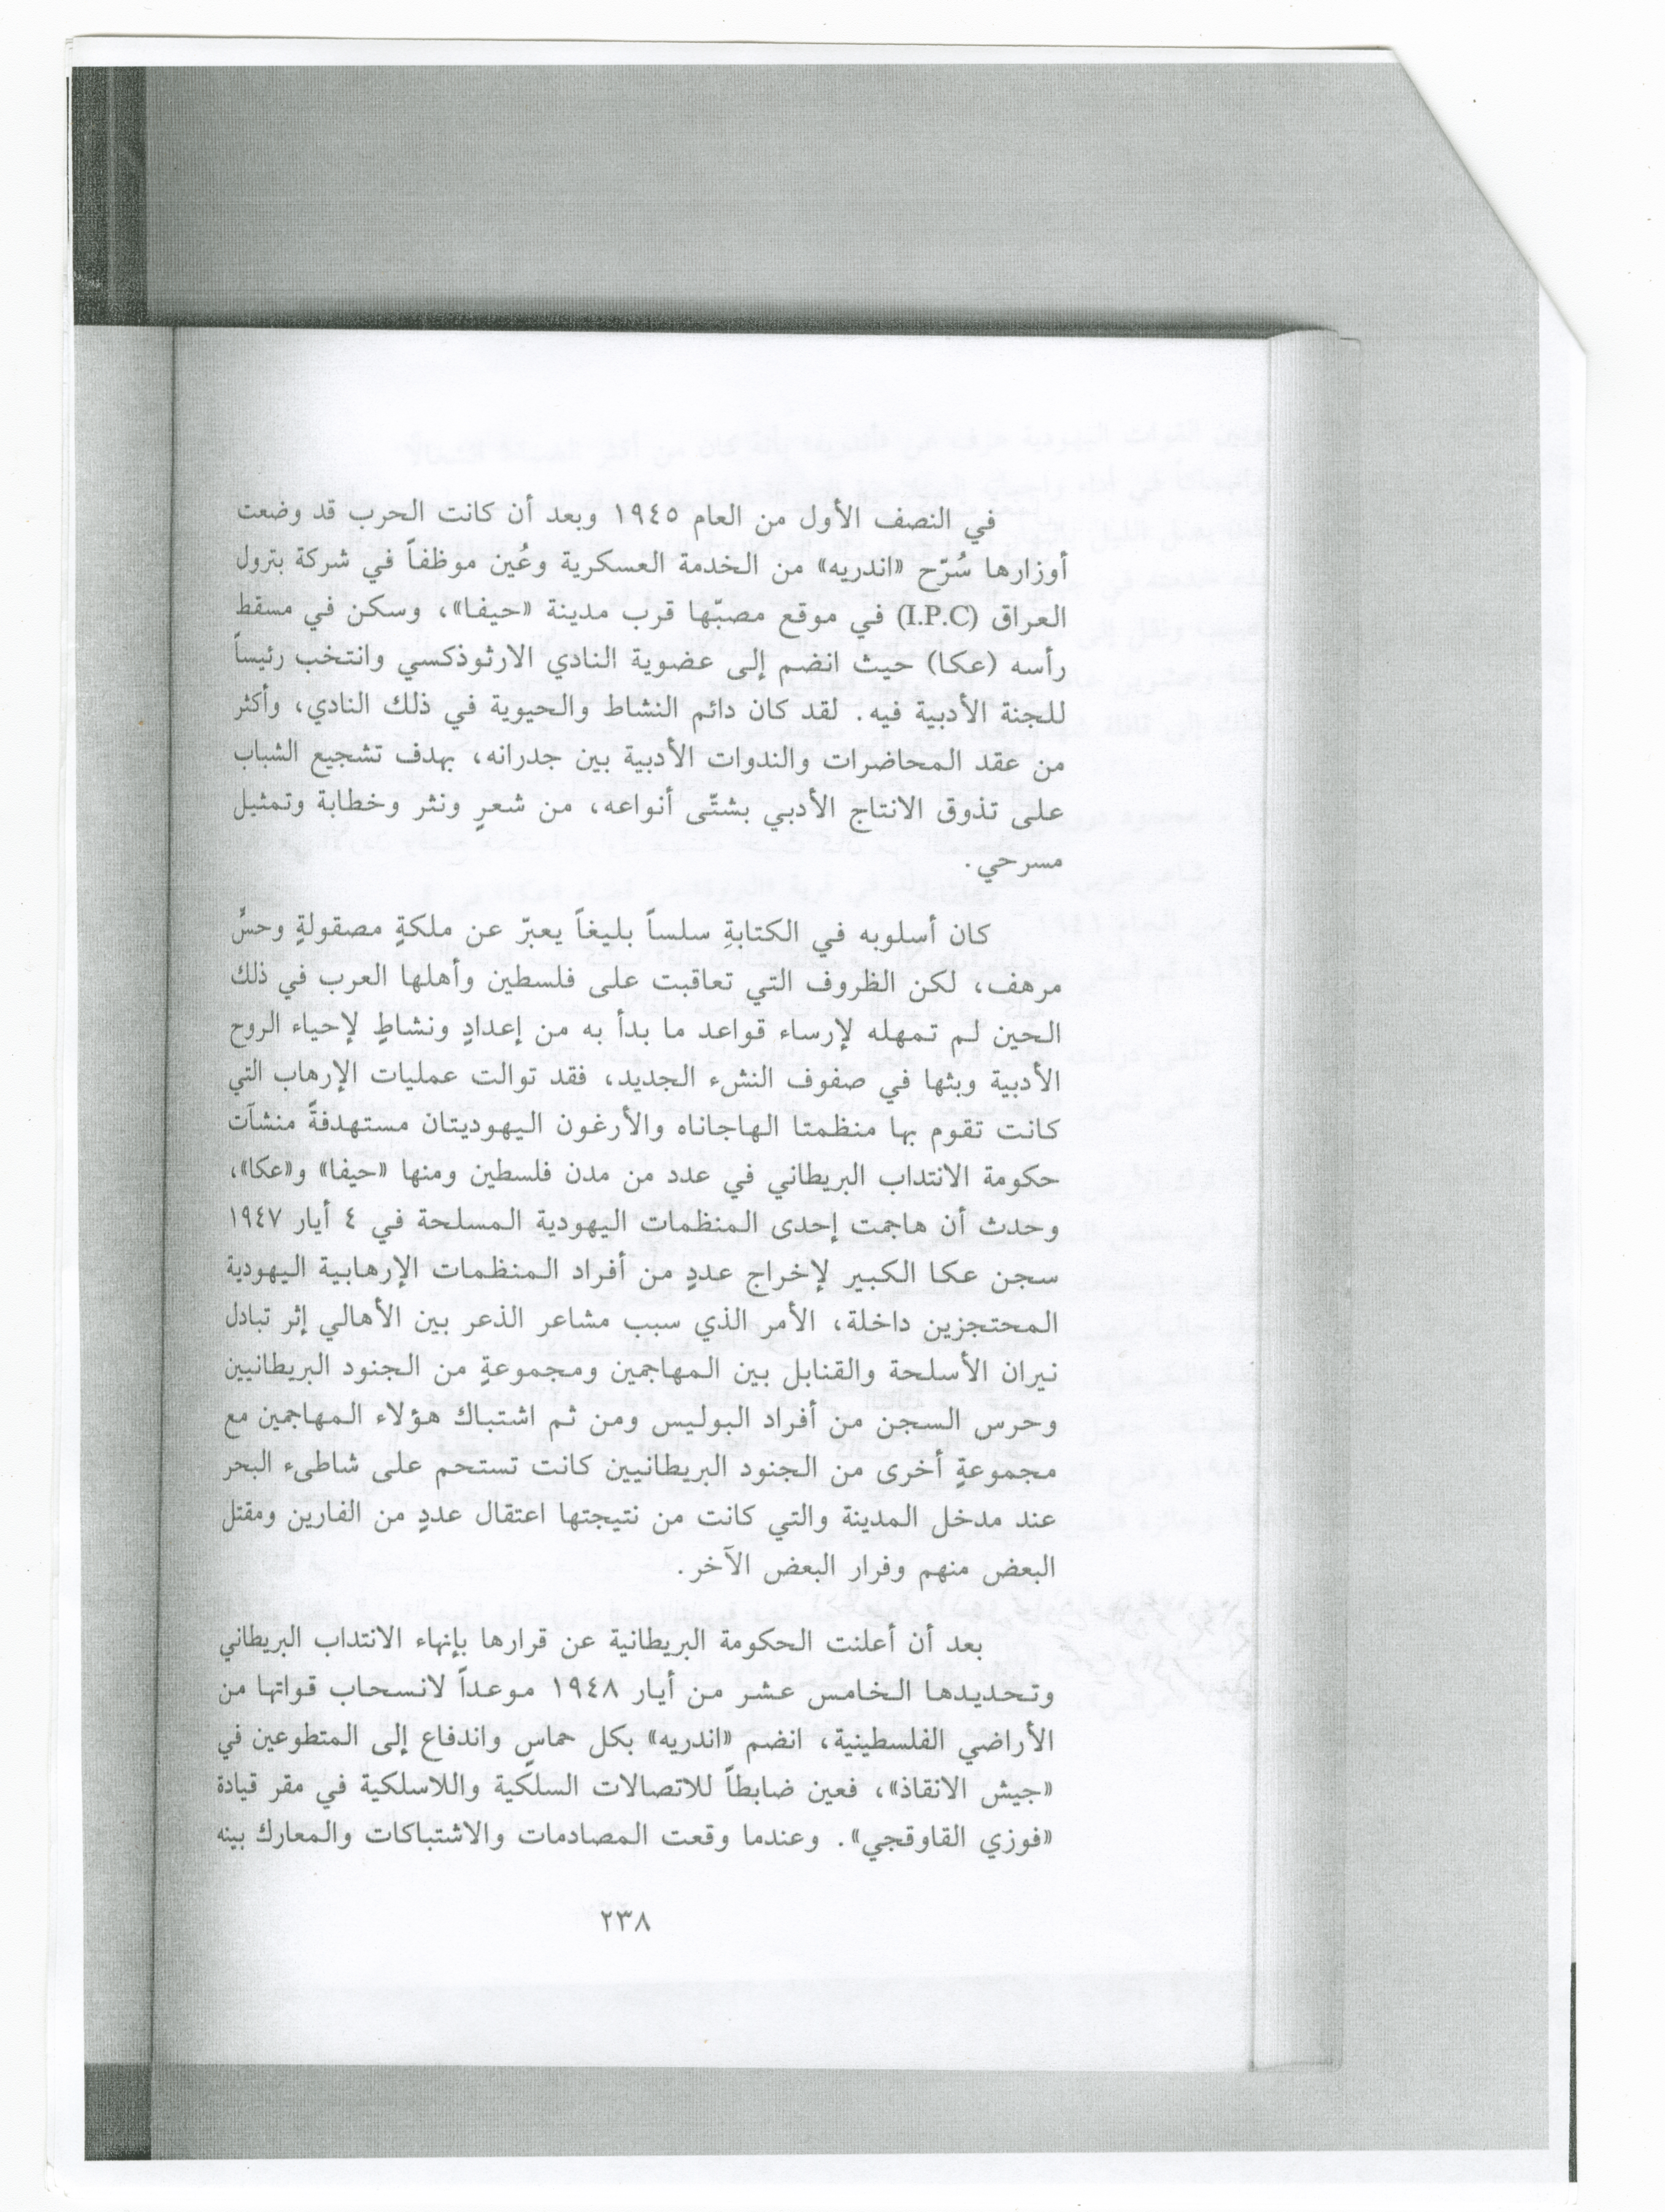 في النصف الأول من العام ١٩٤٥ وبعد أن كانت الحرب قد وضعت
أوزارها سُرّح «اندريه» من الخدمة العسكرية وعُين موظفاً في شركة بترول
العراق (I.P.C) في موقع مصبّها قرب مدينة «حيفا»، وسكن في مسقط
رأسه (عكا) حيث انضم إلى عضوية النادي الارثوذكسي وانتخب رئيساً
للجنة الأدبية فيه. لقد كان دائم النشاط والحيوية في ذلك النادي، وأكثر
من عقد المحاضرات والندوات الأدبية بين جدرانه، بهدف تشجيع الشباب
على تذوق الانتاج الأدبي بشتّى أنواعه، من شعرٍ ونثر وخطابة وتمثيل
مسرحي.
كان أسلوبه في الكتابةِ سلساً بليغاً يعبرّ عن ملكةٍ مصقولةٍ وحسٍّ
مرهف، لكن الظروف التي تعاقبت على فلسطين وأهلها العرب في ذلك
الحين لم تمهله لإرساء قواعد ما بدأ به من إعدادٍ ونشاطٍ لإحياء الروح
الأدبية وبثها في صفوف النشء الجديد، فقد توالت عمليات الإرهاب التي
كانت تقوم بها منظمتا الهاجاناه والأرغون اليهوديتان مستهدفةً منشآت
حكومة الانتداب البريطاني في عدد من مدن فلسطين ومنها «حيفا» و«عكا»،
وحدث أن هاجمت إحدى المنظمات اليهودية المسلحة في ٤ أيار ١٩٤٧
سجن عكا الكبير لإخراج عددٍ من أفراد المنظمات الإرهابية اليهودية
المحتجزين داخلة، الأمر الذي سبب مشاعر الذعر بين الأهالي إثر تبادل
نيران الأسلحة والقنابل بين المهاجمين ومجموعةٍ من الجنود البريطانيين
وحرس السجن من أفراد البوليس ومن ثم اشتباك هؤلاء المهاجمين مع
مجموعةٍ أخرى من الجنود البريطانيين كانت تستحم على شاطىء البحر
عند مدخل المدينة والتي كانت من نتيجتها اعتقال عددٍ من الفارين ومقتل
البعض منهم وفرار البعض الآخر.
بعد أن أعلنت الحكومة البريطانية عن قرارها بإنهاء الانتداب البريطاني
وتحديدها الخامس عشر من أيار ١٩٤٨ موعداً لانسحاب قواتها من
الأراضي الفلسطينية، انضم «اندريه» بكل حماسٍ واندفاع إلى المتطوعين في
«جيش الانقاذ»، فعين ضابطاً للاتصالات السلكية واللاسلكية في مقر قيادة
«فوزي القاوقجي». وعندما وقعت المصادمات والاشتباكات والمعارك بينه
٢٣٨